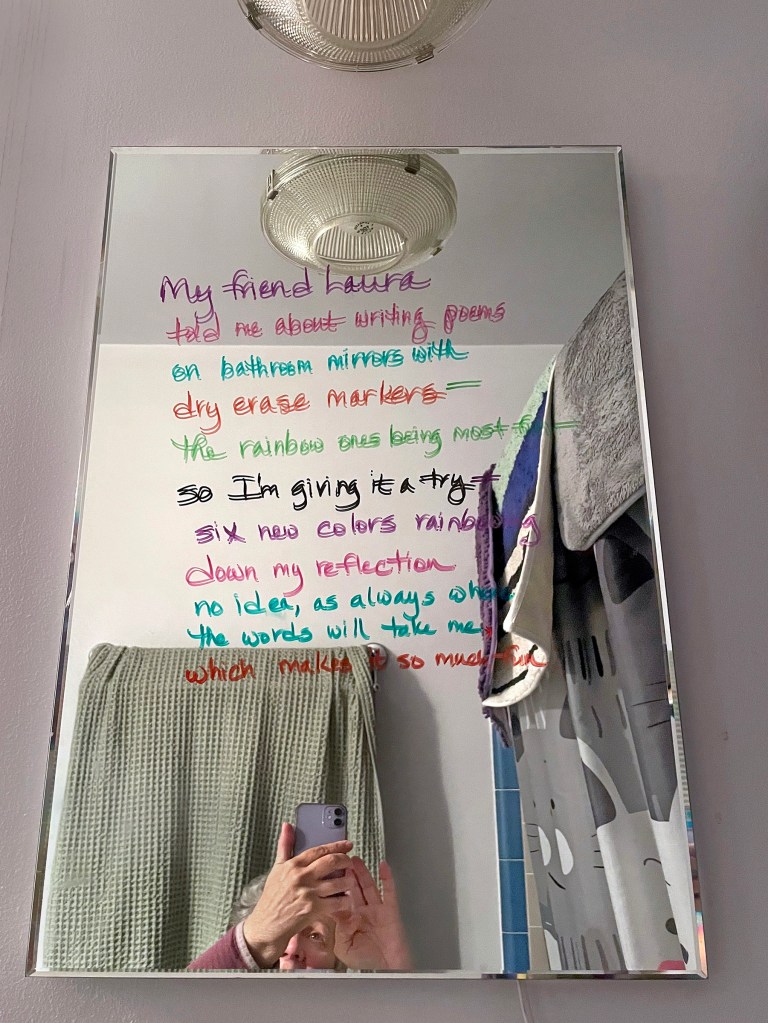 My friend Laura
told me about writing poems
on bathroom mirrors with
dry erase markers =
the rainbow ones being most fun =
so I'm giving it a try =
six new colors rainbowing
down my reflection
no idea, as always where
the words will take me
which makes it so much fun